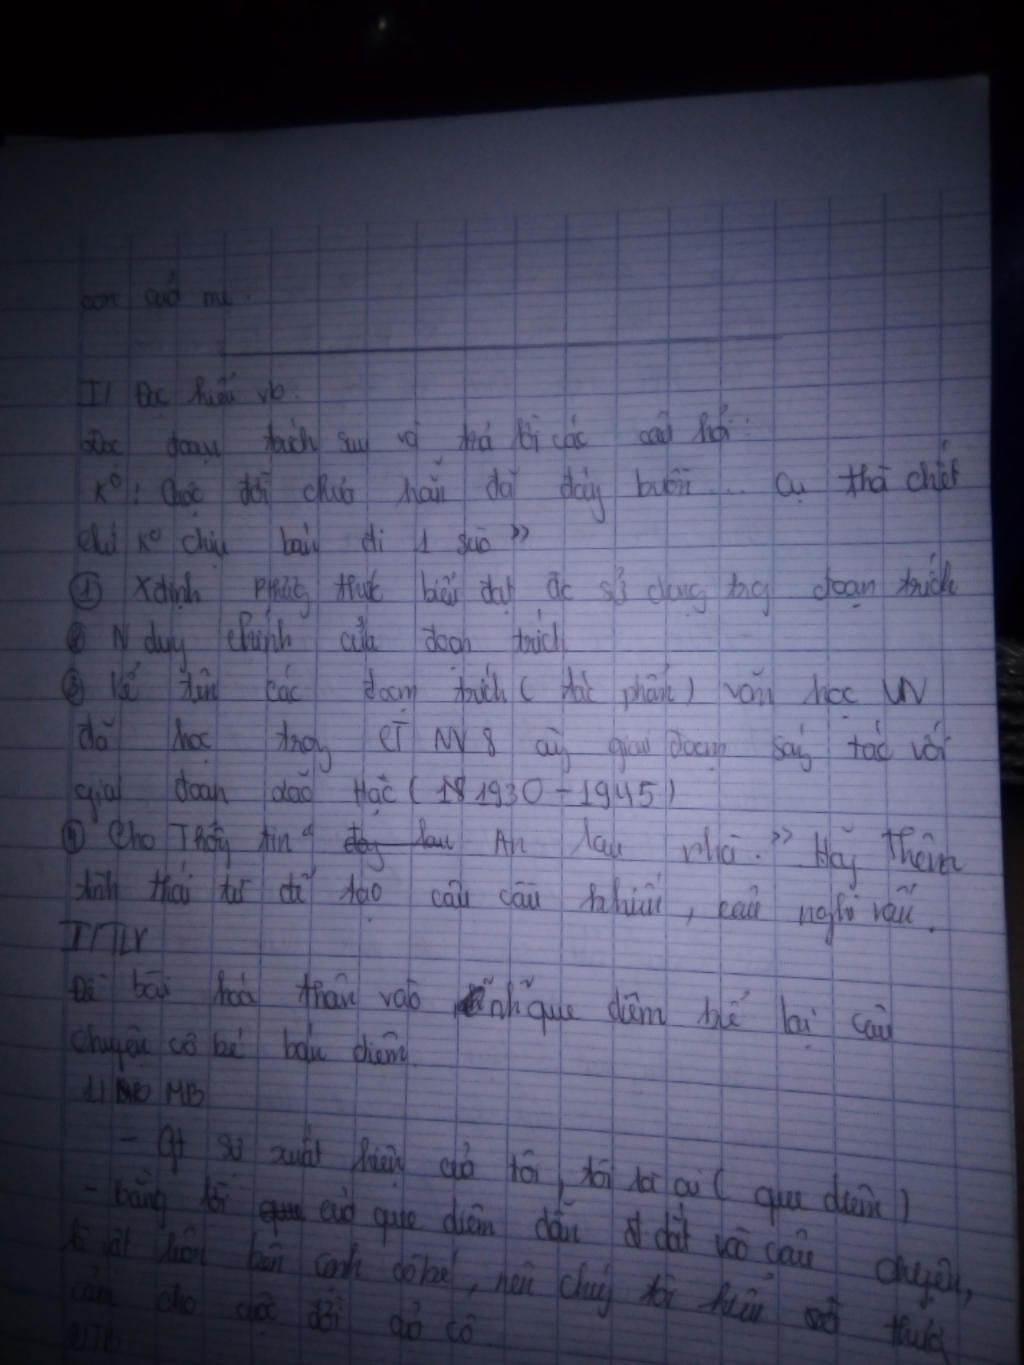 con của mẹ.
I/ Đọc hiểu vb.
Đọc đoạn trích sau và trả lời các câu hỏi:
K⁰! Cuộc đời chưa hẳn đã đáng buồn... cụ thà chết
chứ k⁰ chịu bán đi 1 sào »
① Xđịnh phg thức biểu đạt đc sử dụng trg đoạn trích
② N dug chính của đoạn trích
③ Kể tên các đoạn trích ( tác phẩm ) văn học VN
đã học trog CT NV 8 cùg giai đoạn ság tác với
giai đoạn Lão Hạc ( 1930 - 1945 )
④ Cho Thôg tin " An lau nhà." Hãy thêm
tình thái từ để tạo câu cầu khiến, câu nghi vấn.
II/TLV
Đề bài hoá thân vào nhữ que diêm kể lại câu
chuyện cô bé bán diêm.
1/ MB
- Gt sự xuất hiện của tôi, tôi là ai ( que diêm )
- bằng lời của que diêm dẫn dắt vào câu chuyện,
là vật luôn bên cạnh cô bé, nên chúg tôi hiểu thươg
cảm cho cuộc đời của cô.
2/TB